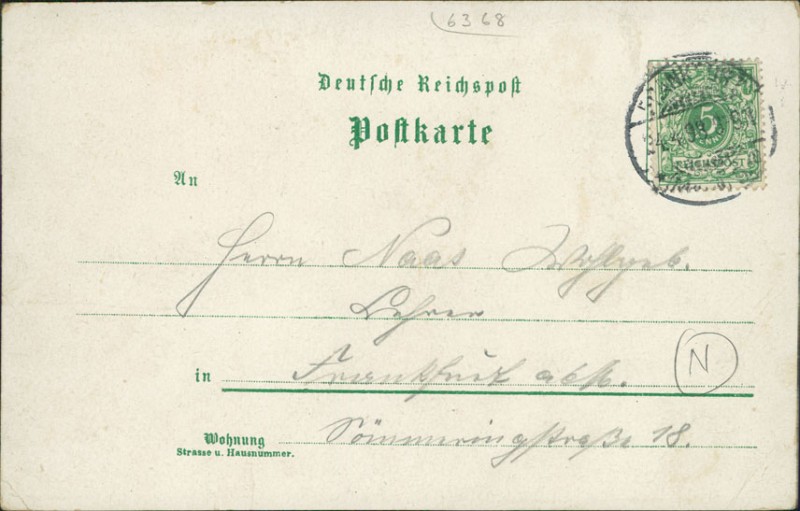 6368
Deutsche Reichspost
Postkarte
An
Herrn Naas Wohlgeb.
Lehrer
in Frankfurt
N
Sömmeringstraße 18.
Wohnung
Strasse u. Hausnummer.
5
REICHSPOST